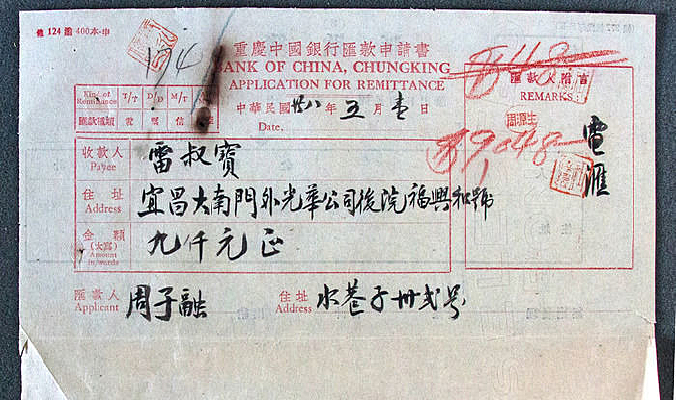 重慶中國銀行匯款申請書
BANK OF CHINA, CHUNGKING
APPLICATION FOR REMITTANCE
中華民國廿八年五月壹日
Date,
Kind of Remittance T/T D/D M/T
匯款種類 電 票 信
匯款人附言
REMARKS
周源生
9,048—
電匯
收款人 雷叔寶
Payee
住址 宜昌大南門外光華公司後院福興和號
Address
金額 九仟元正
(大寫)
Amount in words
匯款人 周子融 住址 水巷子卅弍号
Applicant Address